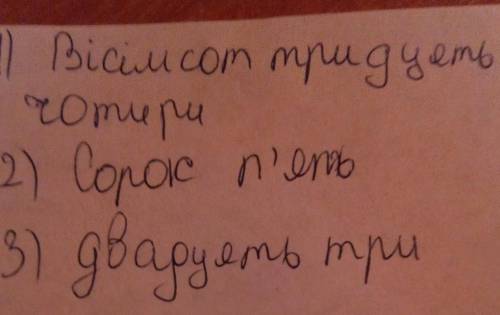 1) Вісімсот тридцять
чотири
2) Сорок п'ять
3) двадцять три